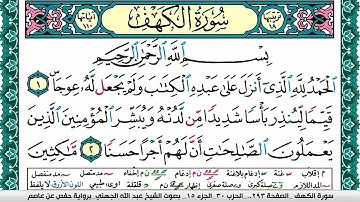 ترتيبها ١٨
سُورَةُ الكَهْفِ
آياتها ١١٠
بِسْمِ اللَّهِ الرَّحْمَٰنِ الرَّحِيمِ
الْحَمْدُ لِلَّهِ الَّذِي أَنزَلَ عَلَىٰ عَبْدِهِ الْكِتَابَ وَلَمْ يَجْعَل لَّهُ عِوَجًا ۜ ١
قَيِّمًا لِّيُنذِرَ بَأْسًا شَدِيدًا مِّن لَّدُنْهُ وَيُبَشِّرَ الْمُؤْمِنِينَ الَّذِينَ
يَعْمَلُونَ الصَّالِحَاتِ أَنَّ لَهُمْ أَجْرًا حَسَنًا ٢ مَّاكِثِينَ
سورة الكهف الصفحة ٢٩٣ الحزب ٣٠ الجزء ١٥ بصوت الشيخ عبد الله الجهني برواية حفص عن عاصم